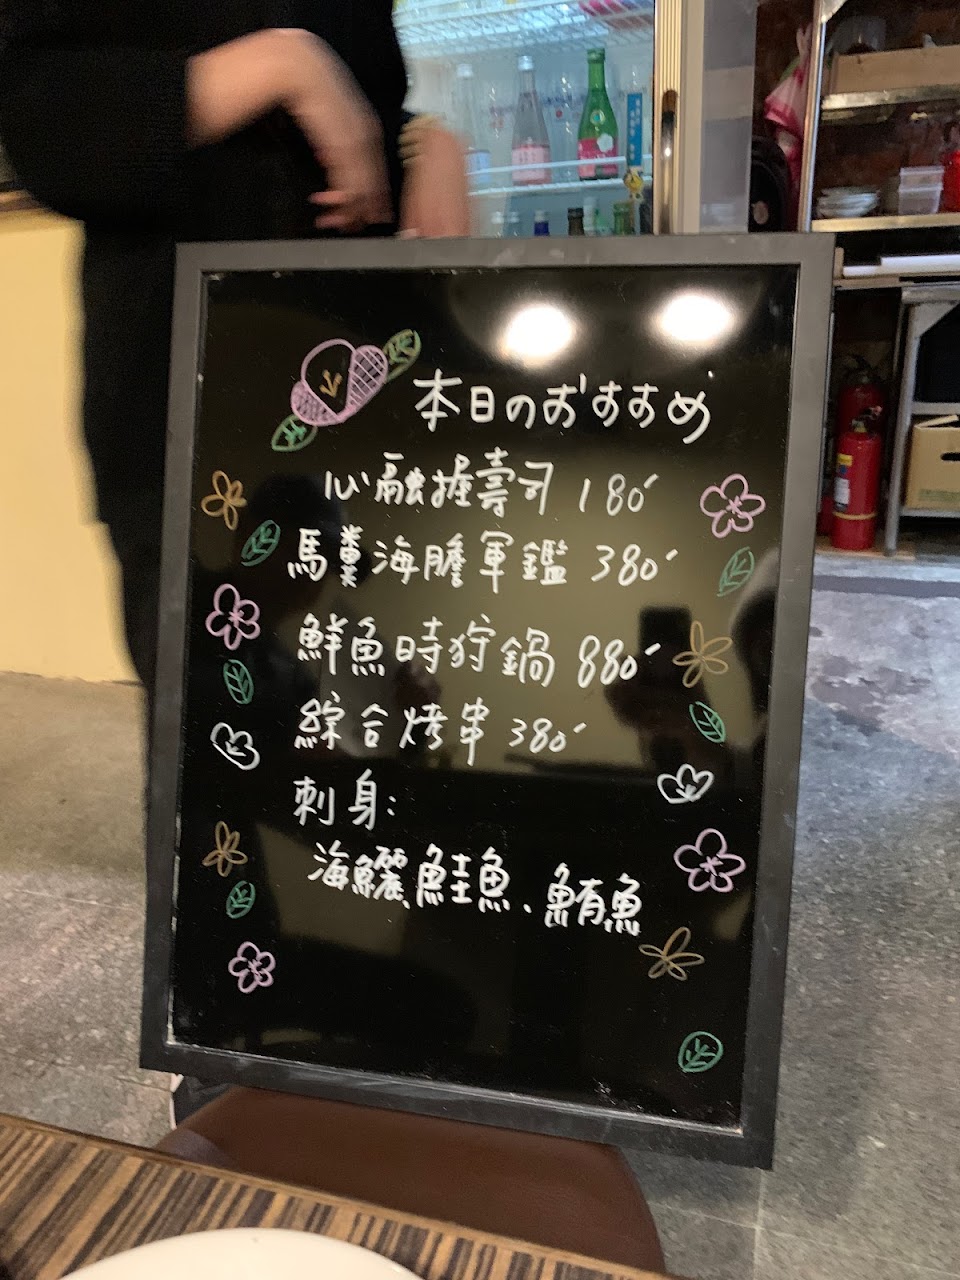 本日のおすすめ
心融握壽司 180
馬糞海膽軍鑑 380
鮮魚時狩鍋 880
綜合烤串 380
刺身:
海鱺、鮭魚、鮪魚